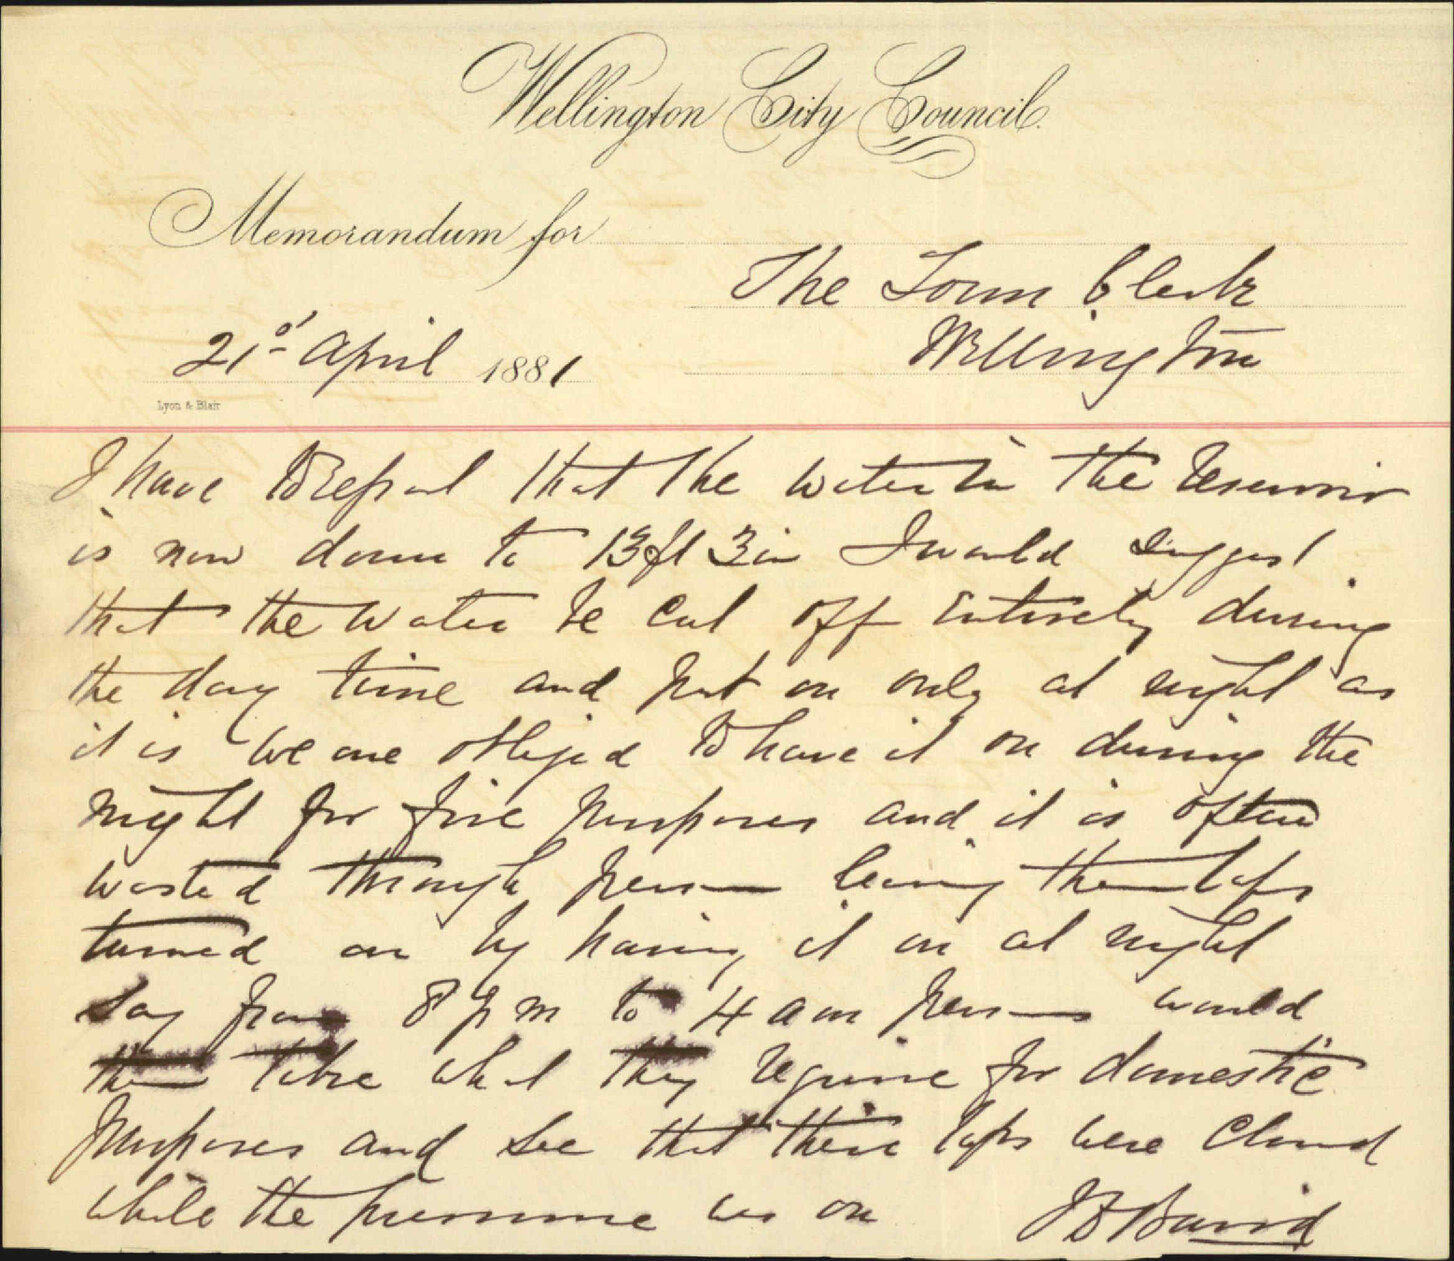 Wellington City Council.
Memorandum for
The Town Clerk
Wellington
21st April 1881
Lyon & Blair
I have to Report that the water in the Reservoir
is now down to 13 ft 3 in I would suggest
that the water be cut off entirely during
the day time and put on only at night as
it is we are obliged to have it on during the
night for fire purposes and it is often
wasted through persons leaving them taps
turned on by having it on at night
say from 8 pm to 4 am persons would
then take what they require for domestic
purposes and see that their taps were closed
while the pressure was on
J B